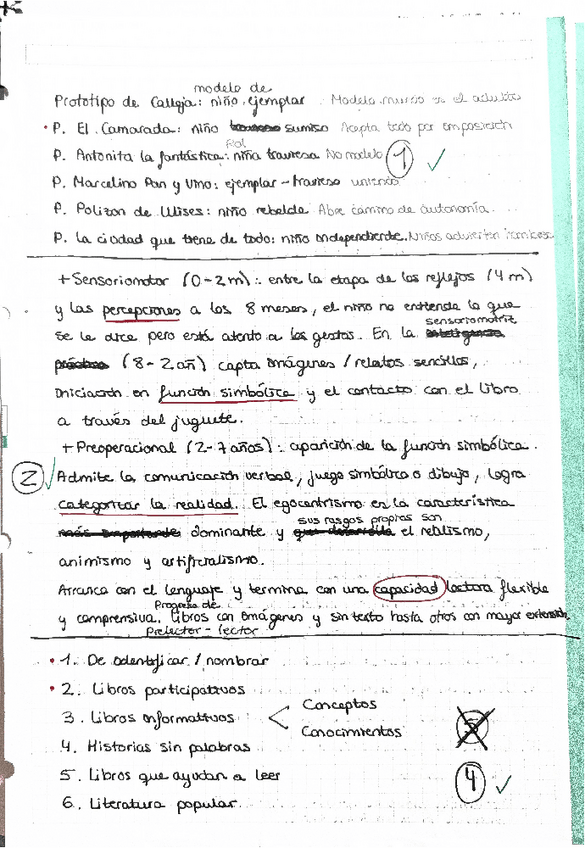 modelo de
Prototipo de Calleja: niño ejemplar. Modelo mundo es el adulto
• P. El Camarada: niño travieso sumiso Acepta todo por imposición
Rol
P. Antoñita la fantástica: niña traviesa No modelo 1 ✓
P. Marcelino Pan y Vino: ejemplar - travieso
P. Polizón de Ulises: niño rebelde Abre camino de autonomía.
P. La ciudad que tiene de todo: niño independiente. Niños advierten
+ Sensoriomotor (0-2m): entre la etapa de los reflejos (4m)
y las percepciones a los 8 meses, el niño no entiende lo que
se le dice pero está atento a los gestos. En la inteligencia
sensoriomotriz
práctica (8-2 añ) capta imágenes / relatos sencillos,
Iniciación en función simbólica y el contacto con el libro
a través del juguete.
+ Preoperacional (2-7 años): aparición de la función simbólica.
2 ✓ Admite la comunicación verbal, juego simbólico o dibujo, logra
categorizar la realidad. El egocentrismo en la característica
sus rasgos propios son
más importante dominante y que desarrolla el realismo,
animismo y artificialismo.
Arranca con el lenguaje y termina con una capacidad lectora flexible
Progreso de
y comprensiva. Libros con imágenes y sin texto hasta otros con mayor extensión.
Prelector - lector
• 1. De identificar / nombrar
• 2. Libros participativos
3. Libros informativos < Conceptos
Conocimientos
4. Historias sin palabras
5. Libros que ayudan a leer 4 ✓
6. Literatura popular.